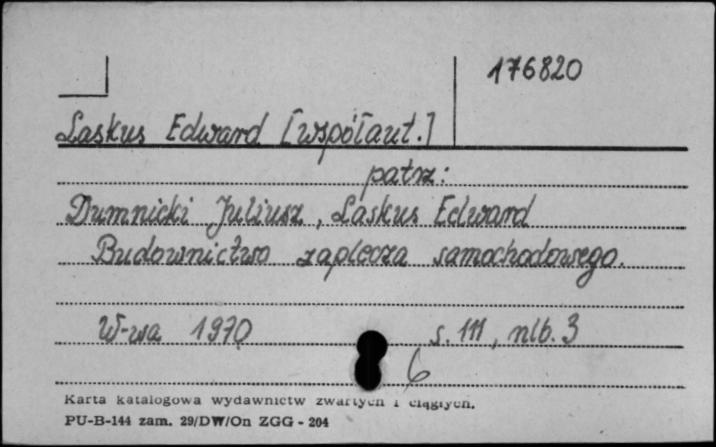 176820
Laskus Edward [współaut.]
patrz:
Dumnicki Juliusz, Laskus Edward
Budownictwo zaplecza samochodowego.
W-wa 1970 s. 111, nlb. 3
6
Karta katalogowa wydawnictw zwartych i ciągłych.
PU-B-144 zam. 29/DW/On ZGG - 204